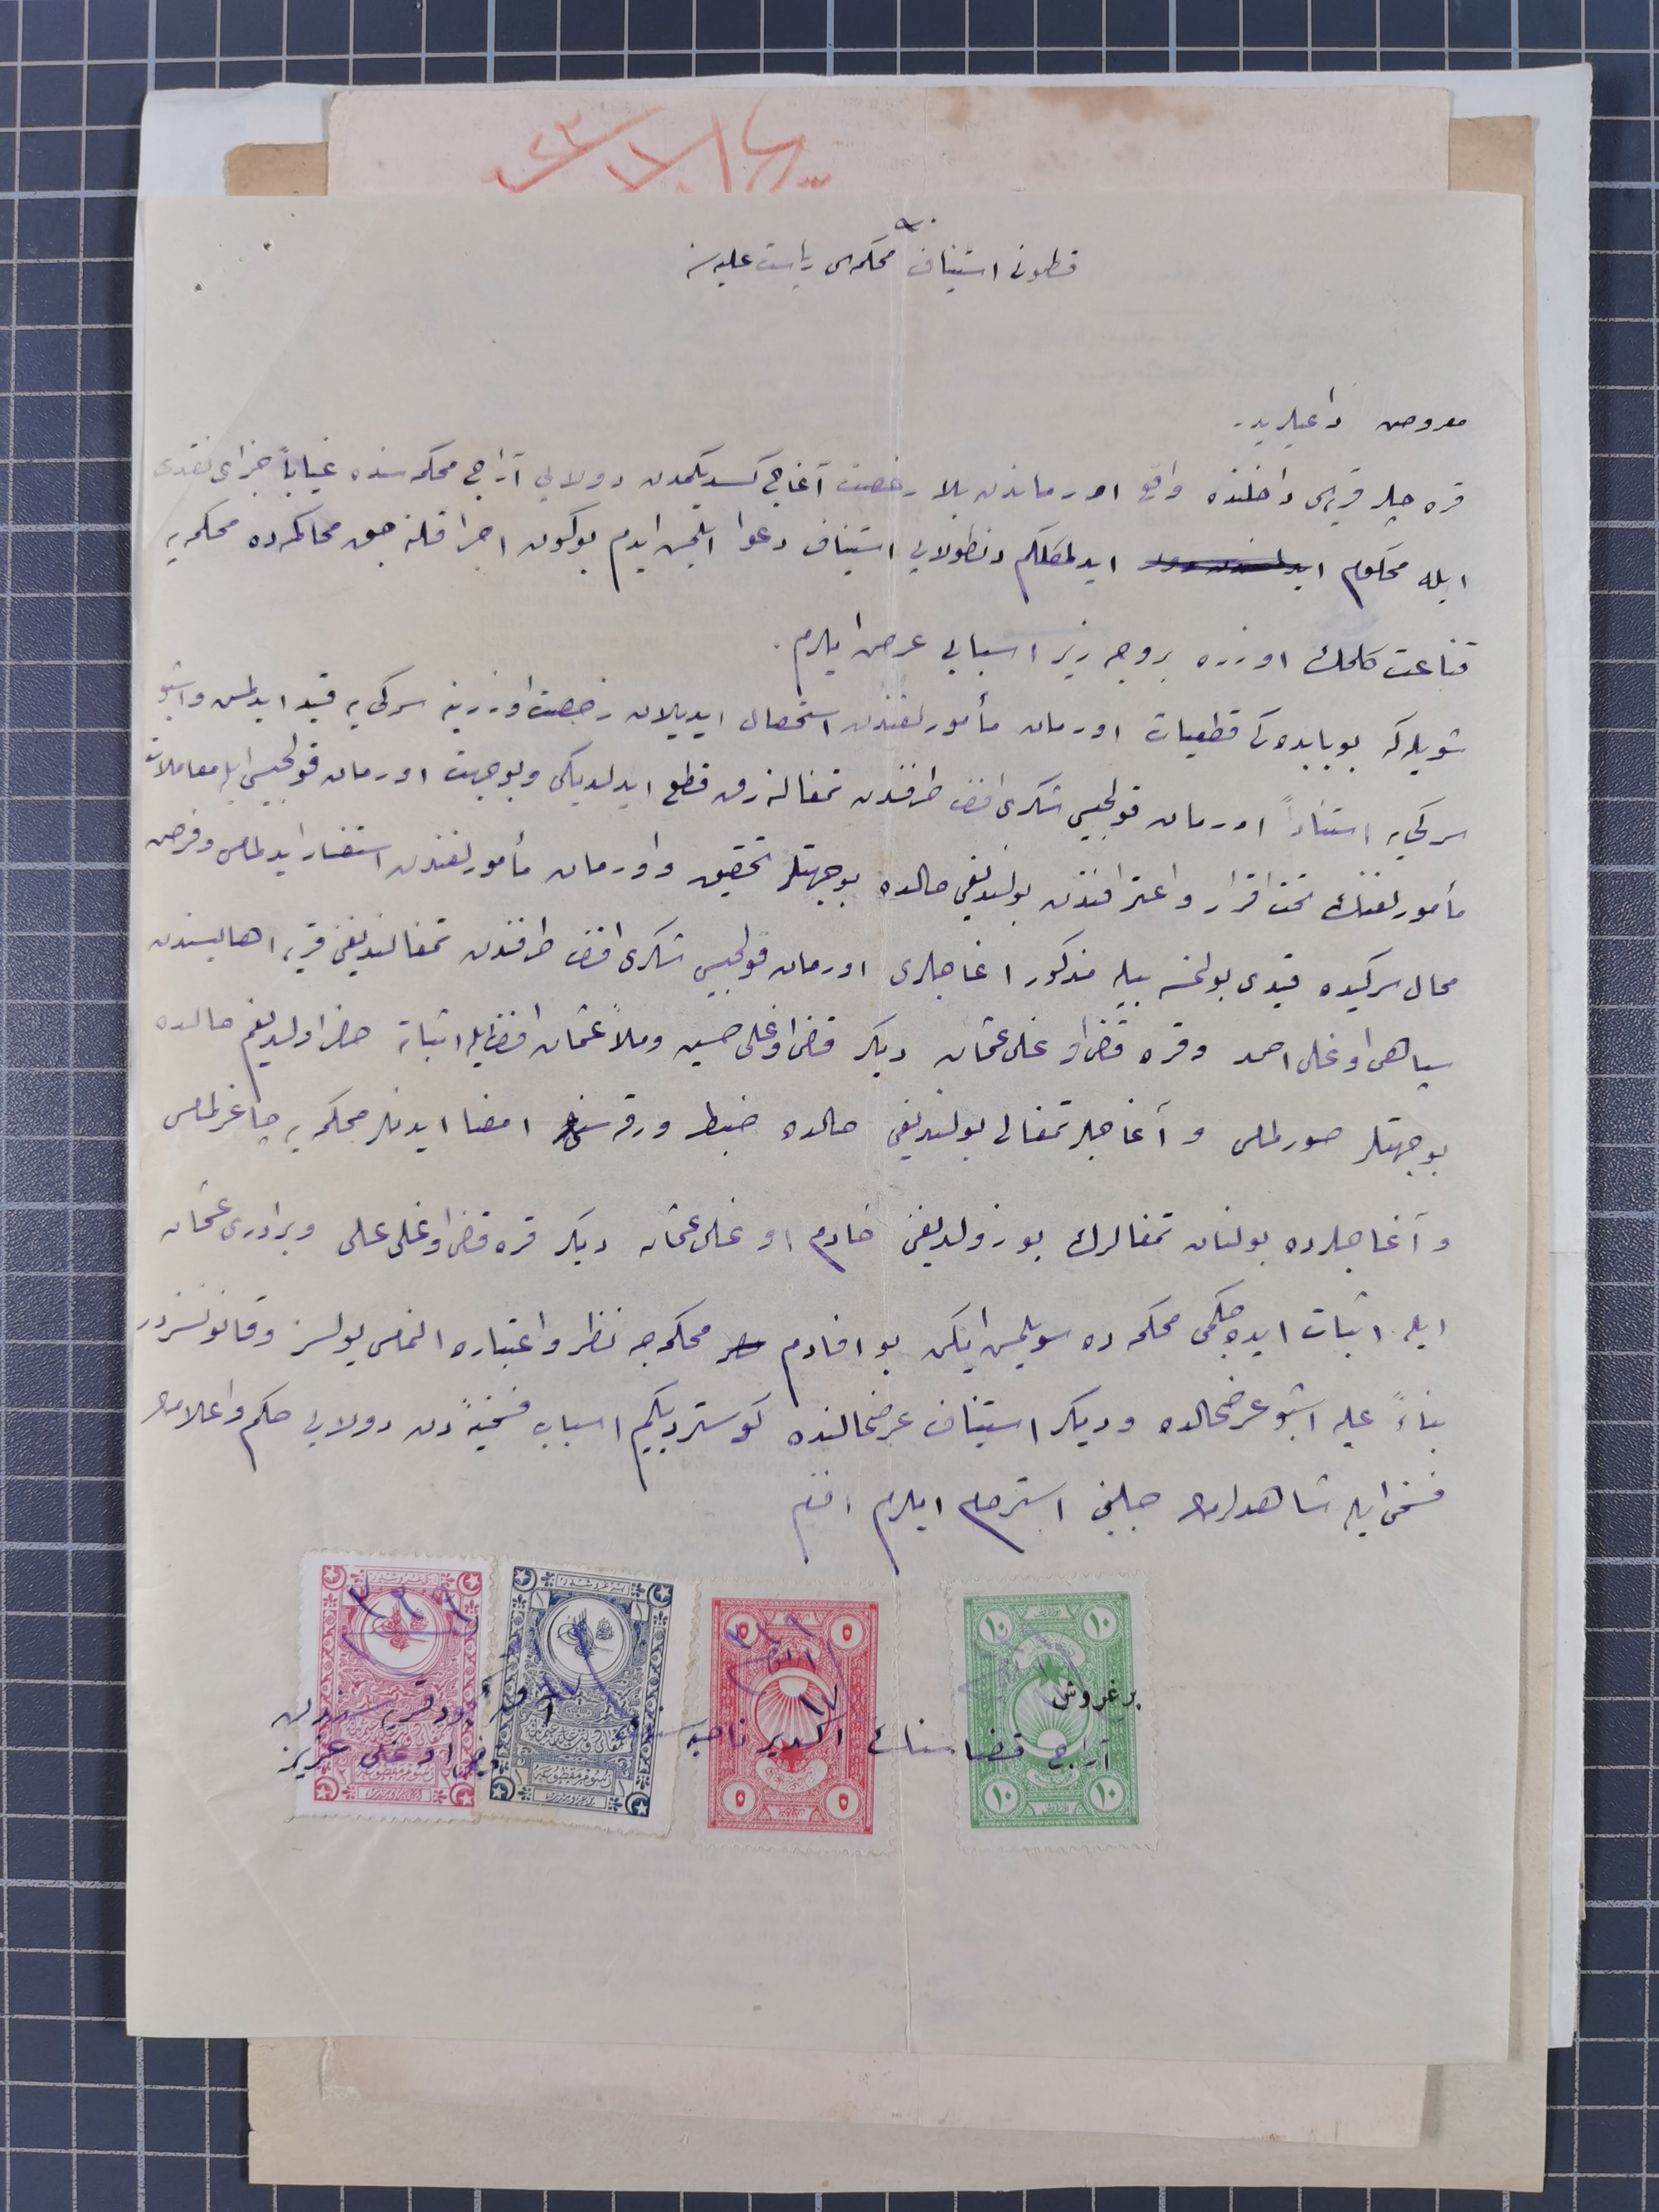 قسطمونی استیناف محکمه‌سی ریاست علیه‌سنه
معروض داعیلریدر
قره‌چلر قریه‌سی داخلنده واقع اورماندن بلا رخصت آغاج کسدیکمدن دولایی آراج محکمه‌سنده غیاباً جزای نقدی
ایله محکوم ایدلمکلکم دن طولایی استیناف دعوا ایتمش ایدم بوکون اجرا قلنه‌جق محاکمه‌ده محکمه‌یه
قناعت کلمك اوزره بروجه زیر اسبابی عرض ایلرم.
شویله‌که بو بابده‌کی قطعیات اورمان مأمورلغندن استحصال ایدیلان رخصت اوزرینه سرکی‌یه قید ایدلمش واشبو
سرکی‌یه استناداً اورمان قولجیسی شکری افندی طرفندن تمغالنه‌رق قطع ایدلدیکی وبوجهت اورمان قولجیسی ایله معاملات
مأمورلغنك تحت اقرار واعترافندن بولندیغی حالده بوجهتلر تحقیق واورمان مأمورلغندن استفسار ایدلمامش وفرض
محال سرکیده قیدی بولنمسه بیله مذکور اغاجلری اورمان قولجیسی شکری افندی طرفندن تمغالندیغنی قریه اهالیسندن
سپاهی اوغلی احمد وقره قاضی اوغلی عثمان دیکر قاضی اوغلی حسین وملا عثمان افندی ایله اثباته حاضر اولدیغم حالده
بوجهتلر صورلمامش و آغاجلر تمغالی بولندیغی حالده ضبط ورقه‌سنی امضا ایدنلر محکمه‌یه چاغرلمامش
و آغاجلرده بولنان تمغالرك بوزولدیغنی خادم اوغلی عثمان دیکر قره قاضی اوغلی علی وبرادری عثمان
ایله اثبات ایده‌جکمی محکمه‌ده سویلمش ایکن بو افادم محکمه‌جه نظر واعتباره النمامش یولسز وقانونسزدر
بناءً علیه اشبو عرضحالده ودیکر استیناف عرضحالنده کوستردیکم اسباب فسخیه‌دن دولایی حکم واعلامك
فسخی ایله شاهدلرمك جلبنی استرحام ایلرم افندم
بر غروش
آراج قضاسنك اکدیر ناحیه‌سنك
قریه‌سندن
اوغلی عزیز